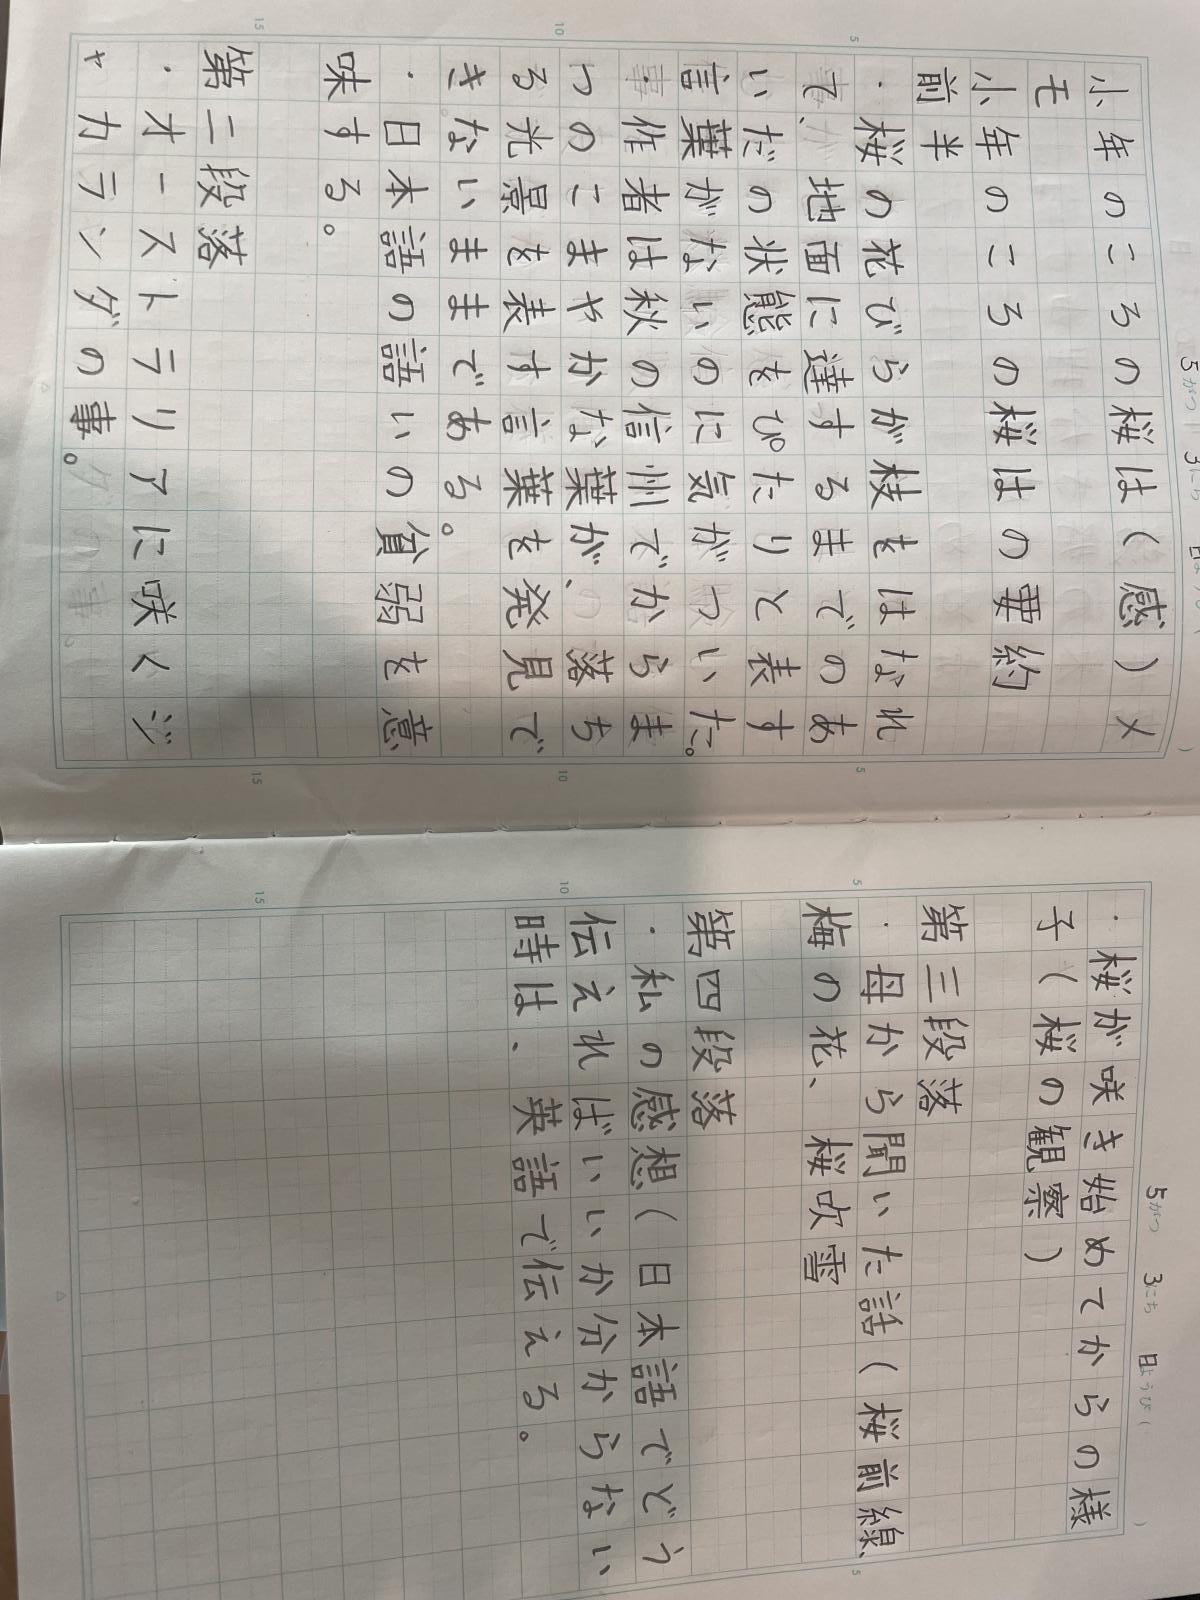 5がつ 3にち 日ようび( )
小年のころの桜は(感)メ
モ
小年のころの桜はの要約
前半
・桜の花びらが枝をはなれ
て、地面に達するまでのあ
いだの状態をぴたりと表す
言葉がないのに気がついた。
・作者は秋の信州でからま
つのこまやかな葉が、落ち
る光景を表す言葉を発見で
きないままである。
・日本語の語いの貧弱を意
味する。
第二段落
・オーストラリアに咲くジ
ャカランダの事。
5
10
15
5
10
15
5がつ 3にち 日ようび( )
・桜が咲き始めてからの様
子(桜の観察)
第三段落
・母から聞いた話(桜前線、
梅の花、桜吹雪
第四段落
・私の感想(日本語でどう
伝えればいいか分からない
時は、英語で伝える。
5
10
15
5